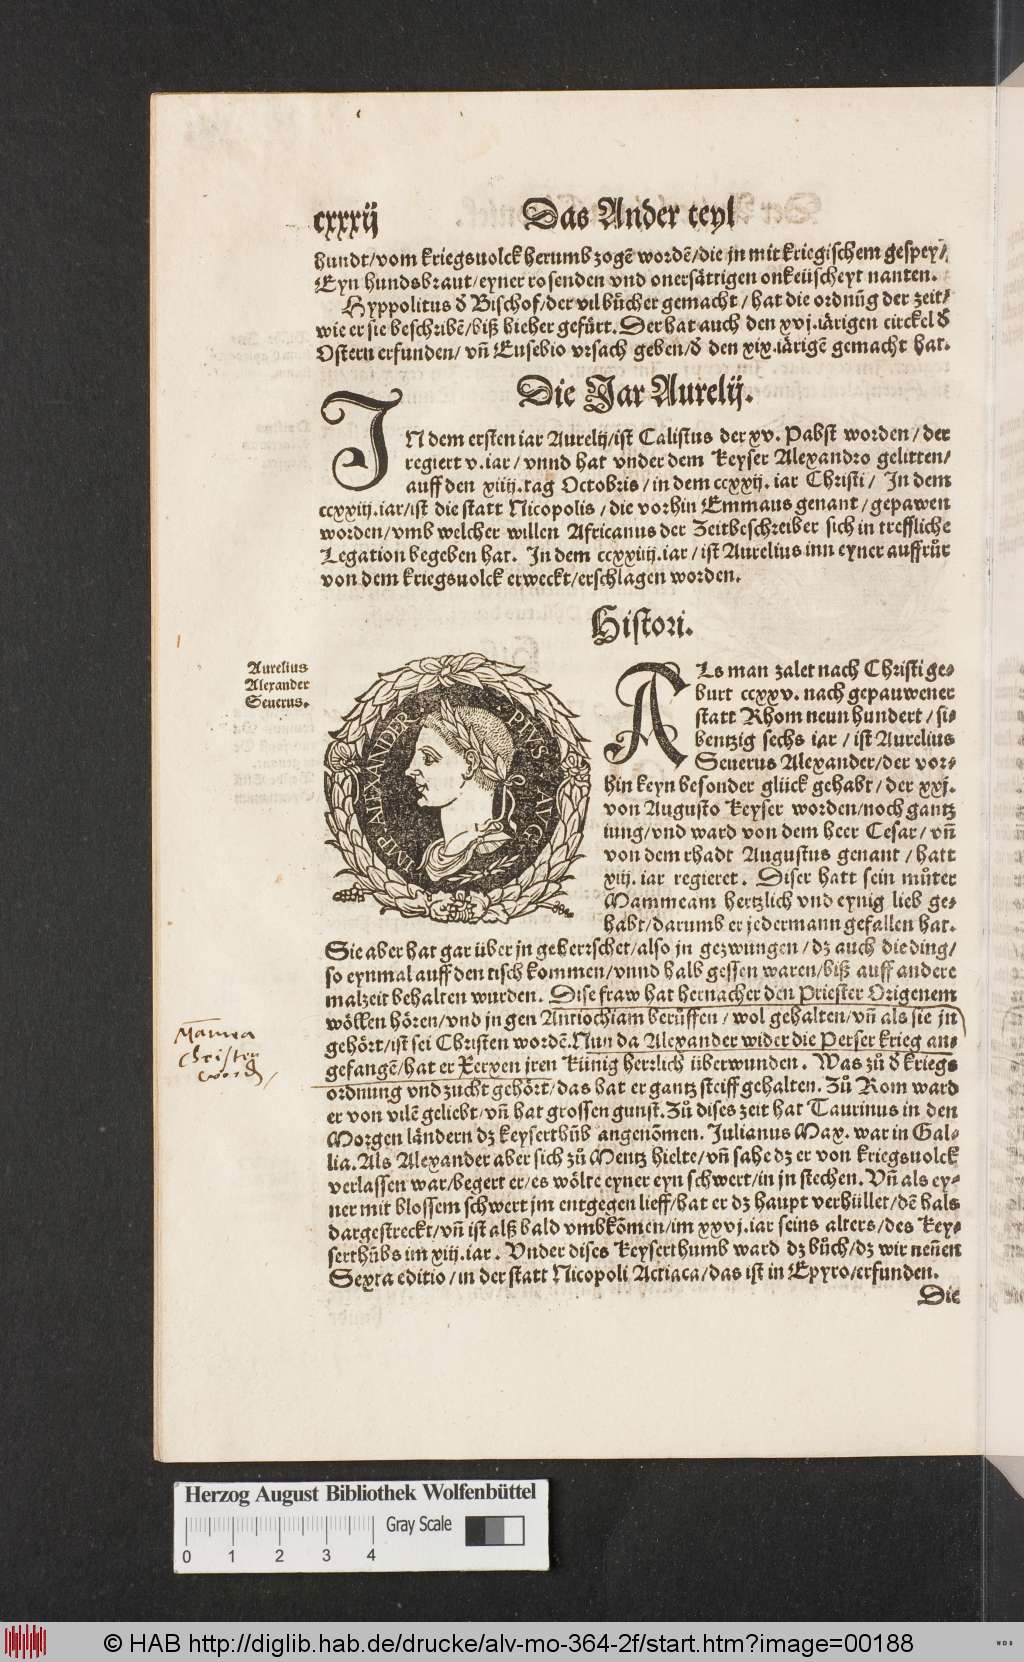 cxxxij Das Ander teyl
hundt/vom kriegsuolck herumb zogẽ wordẽ/die jn mit kriegischem gespey/
Eyn hundsbraut/eyner rosenden vnd onersättigen onkeüscheyt nanten.
Hyppolitus đ Bischof/der vil bůcher gemacht/hat die ordnũg der zeit/
wie er sie beschribẽ/biß hieher gefůrt. Der hat auch den xvj.iärigen circkel đ
Ostern erfunden/vñ Eusebio vrsach geben/đ den xix.iärigẽ gemacht hat.
Die Jar Aurelij.
IN dem ersten iar Aurelij/ist Calistus der xv. Pabst worden/der
regiert v.iar/vnnd hat vnder dem Keyser Alexandro gelitten/
auff den xiiij.tag Octobris/in dem ccxxij. iar Christi/ In dem
ccxxiij.iar/ist die statt Nicopolis/die vorhin Emmaus genant/gepawen
worden/vmb welcher willen Africanus der Zeitbeschreiber sich in treffliche
Legation begeben hat. In dem ccxxiiij.iar/ist Aurelius inn eyner auffrůr
von dem kriegsuolck erweckt/erschlagen worden.
Histori.
Aurelius
Alexander
Seuerus.
IMP. ALEXANDER PIVS AVG.
ALs man zalet nach Christi ge-
burt ccxxv. nach gepauwener
statt Rhom neun hundert/si-
bentzig sechs iar/ist Aurelius
Seuerus Alexander/der vor-
hin keyn besonder glück gehabt/der xxj.
von Augusto Keyser worden/noch gantz
iung/vnd ward von dem heer Cesar/vñ
von dem rhadt Augustus genant/hatt
xiij. iar regieret. Diser hatt sein můter
Mammeam hertzlich vnd eynig lieb ge-
habt/darumb er jedermann gefallen hat.
Sie aber hat gar über jn geherrschet/also jn gezwungen/dz auch die ding/
so eynmal auff den tisch kommen/vnnd halb gessen waren/biß auff andere
malzeit behalten wurden. Dise fraw hat hernacher den Priester Origenem
wöllen hören/vnd jn gen Antiochiam berůffen/wol gehalten/vñ als sie jn
gehört/ist sei Christen wordẽ.Nun da Alexander wider die Perser krieg an-
gefangẽ/hat er Xerxen jren Künig herrlich überwunden. Was zů đ kriegs
ordnung vnd zucht gehört/das hat er gantz steiff gehalten. Zů Rom ward
er von vilẽ geliebt/vñ hat grossen gunst.Zů dises zeit hat Taurinus in den
Morgen ländern dz keyserthũb angenõmen. Julianus Max. war in Gal-
lia. Als Alexander aber sich zů Mentz hielte/vñ sahe dz er von kriegsuolck
verlassen war/begert er/es wölte eyner eyn schwert/in jn stechen. Vñ als ey-
ner mit blossem schwert jm entgegen lieff/hat er dz haupt verhüllet/dẽ hals
dargestreckt/vñ ist alß bald vmbkõmen/im xxvj.iar seins alters/des Key-
serthũbs im xiij.iar. Vnder dises Keyserthumb ward dz bůch/dz wir neñen
Sexta editio/in der statt Nicopoli Actiaca/das ist in Epyro/erfunden.
Die
Mam̃ea
christen
word/
Herzog August Bibliothek Wolfenbüttel
Gray Scale
0 1 2 3 4
© HAB http://diglib.hab.de/drucke/alv-mo-364-2f/start.htm?image=00188